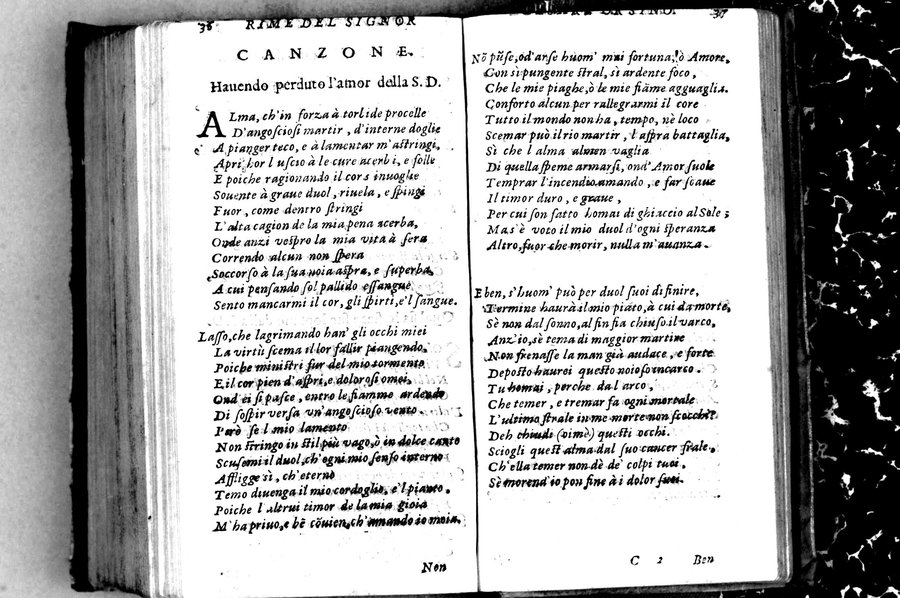 36 RIME DEL SIGNOR
CANZONE.
Hauendo perduto l'amor della S. D.
ALma, ch'in forza à torbide procelle
D'angosciosi martir, d'interne doglie
A pianger teco, e à lamentar m'astringi,
Apri hor l'uscio à le cure acerbi, e folle
E poiche ragionando il cors inuoglie
Souente à graue duol, riuela, e spingi
Fuor, come dentro stringi
L'alta cagion de la mia pena acerba,
Onde anzi vespro la mia vita à sera
Correndo alcun non spera
Soccorso à la sua noia aspra, e superba,
A cui pensando sol pallido essangue
Sento mancarmi il cor, gli spirti, e'l sangue.
Lasso, che lagrimando han' gli occhi miei
La virtù scema il lor fallir piangendo,
Poiche ministri fur del mio tormento
E il cor pien d'aspri, e dolorosi omei,
Ond' ei si pasce, entro le fiamme ardendo
Di sospir versa vn'angoscioso vento.
Però se'l mio lamento
Non stringo in stil più vago, ò in dolce canto
Scusemi il duol, ch'ogni mio senso interno
Affligge sì, ch'eterno
Temo diuenga il mio cordoglio, e'l pianto,
Poiche l'altrui timor de la mia gioia
M'ha priuo, e bē cōuien, ch'amando io moia.
Non
37
Nō pūse, od'arse huom' mai fortuna, ò Amore,
Con sì pungente stral, sì ardente foco,
Che le mie piaghe, ò le mie fiāme agguaglia.
Conforto alcun per rallegrarmi il core
Tutto il mondo non ha, tempo, nè loco
Scemar può il rio martir, l'aspra battaglia,
Sì che l'alma almen vaglia
Di quella speme armarsi, ond'Amor suole
Temprar l'incendio amando, e far soaue
Il timor duro, e graue,
Per cui son fatto homai di ghiaccio al Sole;
Ma s'è voto il mio duol d'ogni speranza
Altro, fuor che morir, nulla m'auanza.
E ben, s'huom' può per duol suoi dì finire,
Termine haurà il mio piato, à cui da morte,
Sè non dal sonno, al fin fia chiuso il varco,
Anz'io, sè tema di maggior martire
Non frenasse la man già audace, e forte
Deposto haurei questo noioso incarco.
Tu homai, perche dal arco,
Che temer, e tremar fa ogni mortale
L'ultimo strale in me morte non scocchi?
Deh chiudi (oimè) questi occhi.
Sciogli quest'alma dal suo cancer frale,
Ch'ella temer non dè de' colpi tuoi,
Sè morend'io pon fine à i dolor suoi.
C 2 Ben